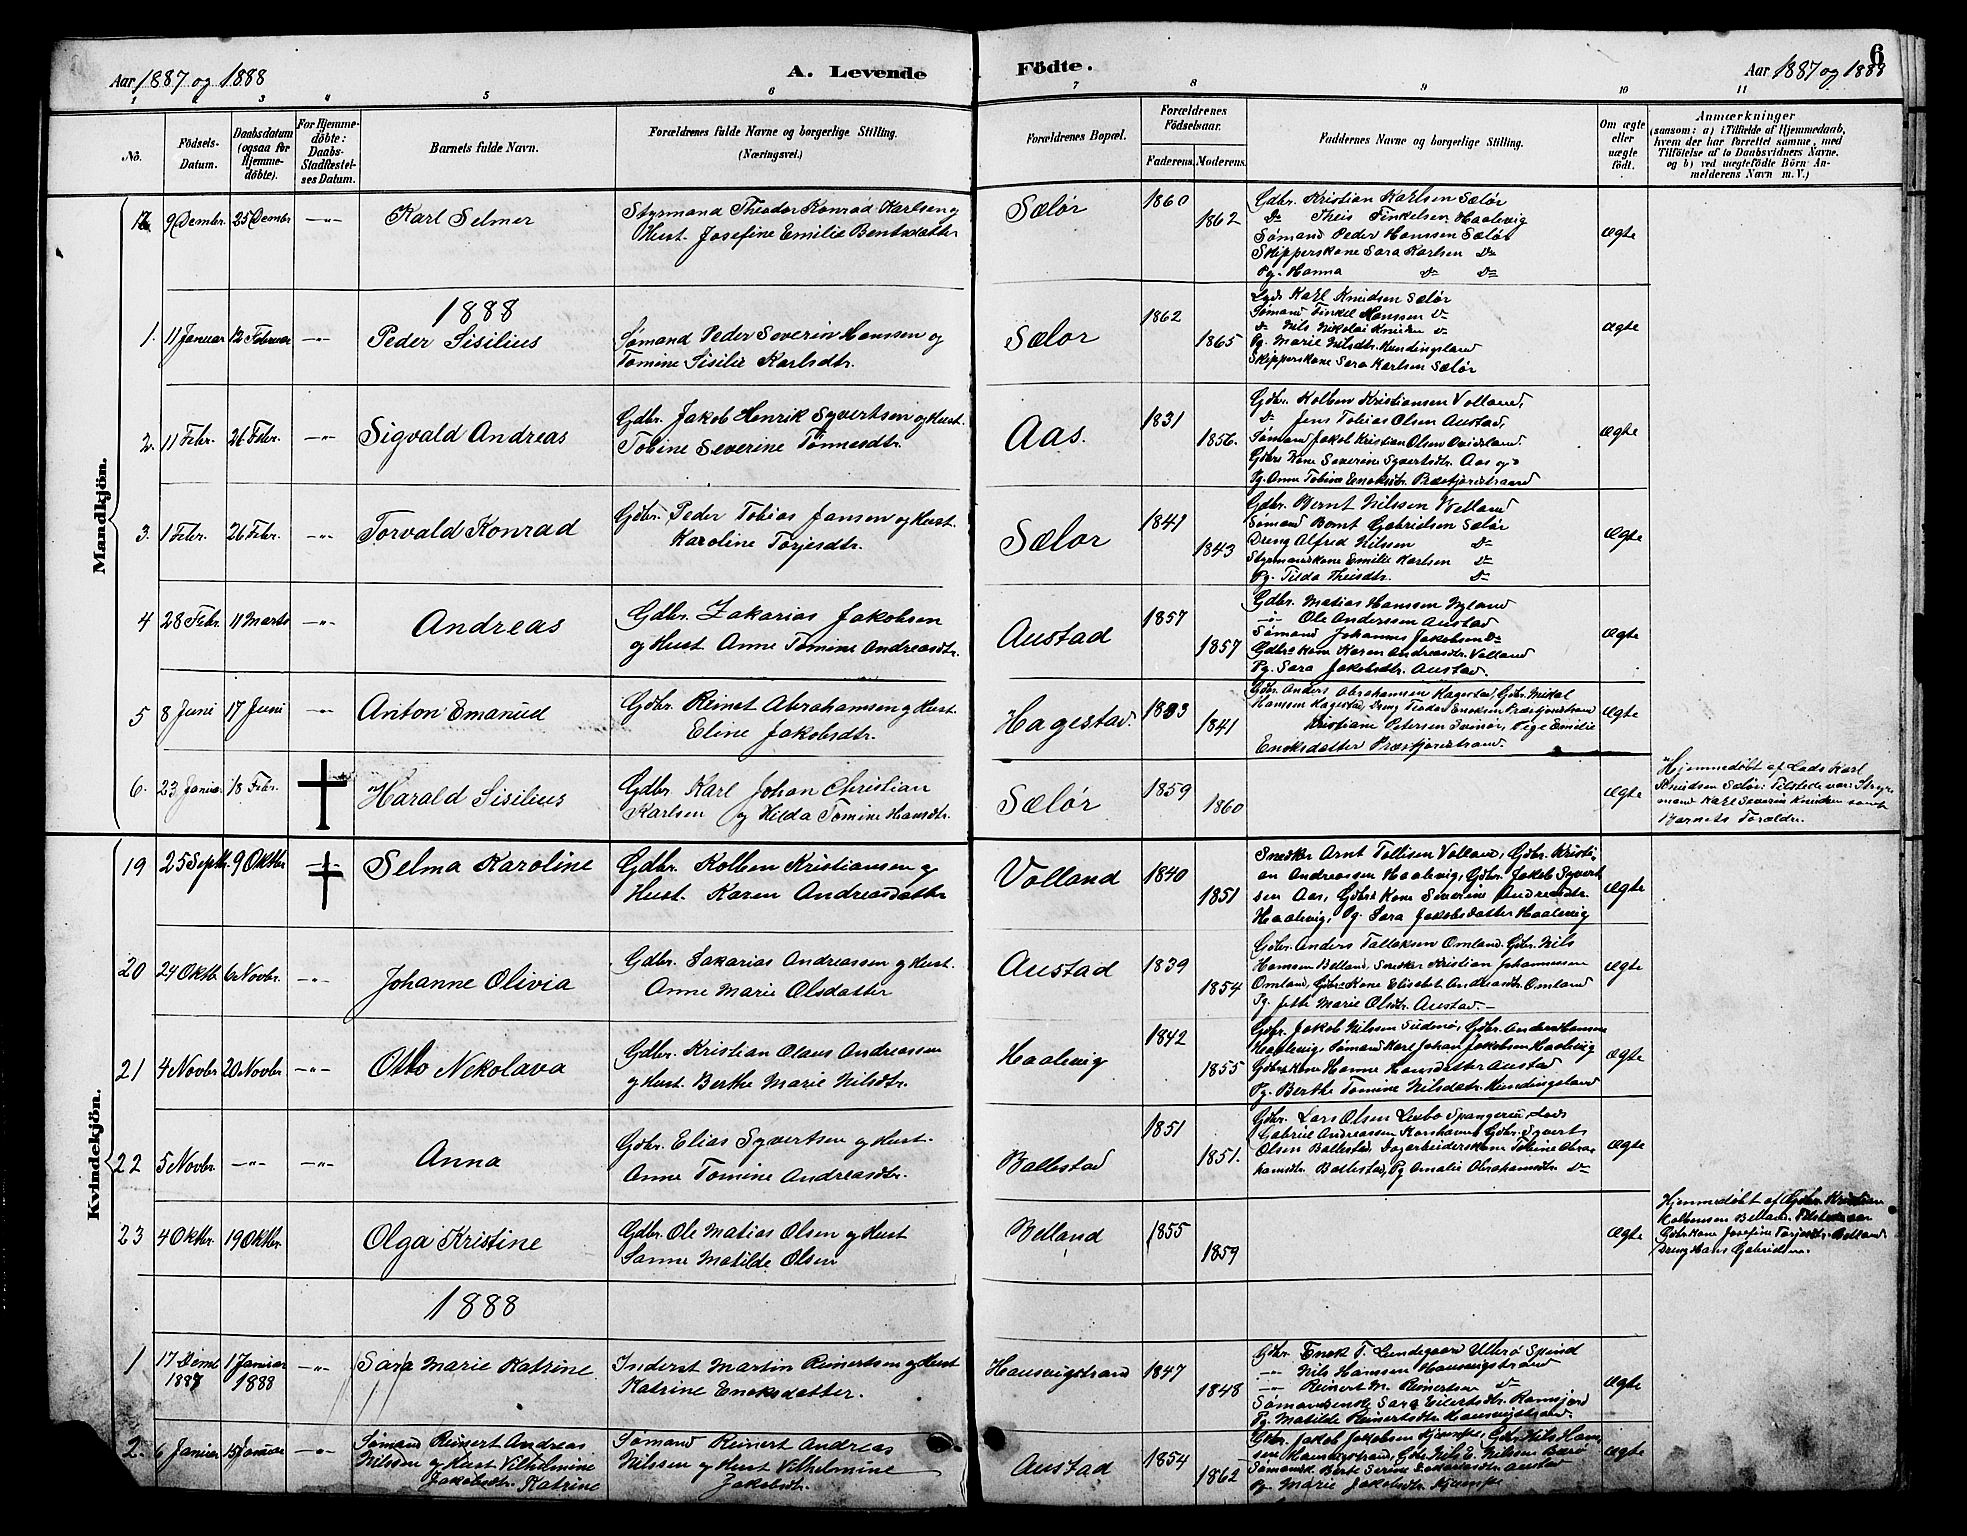 Aar 1887 og 1888
A. Levende
Födte.
Aar 1887 og 1888
6
1 2 3 4 5 6 7 8 9 10 11
No.
Födsels-
Datum.
Daabsdatum
(ogsaa for
Hjemme-
döbte).
For Hjemme-
döbte:
Daabs-
Stadfæstel-
ses Datum.
Barnets fulde Navn.
Forældrenes fulde Navne og borgerlige Stilling.
(Næringsvei.)
Forældrenes Bopæl.
Forældrenes
Födselsaar.
Faderens. Moderens.
Faddernes Navne og borgerlige Stilling.
Om ægte
eller
uægte
födt.
Anmærkninger
(saasom: a) i Tilfælde af Hjemmedaab,
hvem der har forrettet samme, med
Tilföielse af to Daabsvidners Navne.
og b) ved uægtefödte Börn An-
melderens Navn m. V.)
Mandkjön.
9 Dembr 25 Dembr -"- Karl Selmer
Styrmand Theodor Konrad Karlsen og
Hust. Josefine Emilie Bentsdatter
Sælør 1860 1862
Gdbr. Kristian Karlsen Sælør
Do Theis Finkelsen Haalevig
Sømand Peder Hanssen Sælør
Skipperskone Sara Karlsen Do
Pg. Hanna Do Do
ægte
1888
1. 11 Januar 12 Februar -"- Peder Sisilius
Sømand Peder Severin Hanssen og
Tomine Sisilie Karlsdtr.
Sælør 1862 1865
Lods Karl Knudsen Sælør
Sømand Finkel Hanssen Do
Do Nils Nikolai Knudsen Do
Pg. Marie Nilsdtr. Hundingsland
Skipperskone Sara Karlsen Sælør
ægte
2. 11 Febr. 26 Febr. -"- Sigvald Andreas
Gdbr. Jakob Henrik Syvertsen og Hust.
Tobine Severine Tønnesdtr.
Aas. 1831 1856.
Gdbr. Kolben Kristiansen Volland,
Do Jens Tobias Olsen Austad,
Sømand Jakob Kristian Olsen
Gdbrs Kone Severine Syvertsdtr. Aas og
Pg. Anne Tobine Eneksdtr. Præstjordstrand
ægte
3. 1 Febr. 26 Febr. -"- Torvald Konrad
Gdbr. Peder Tobias Jansen og Hust.
Karoline Torjesdtr.
Sælor 1841 1843
Gdbr. Bernt Nilssen Velland
Sømand Bernt Gabrielsen Sælør
Dreng Alfred Nilssen Do
Styrmandskone Emilie Karlsen Do
Pg. Tilda Theisdtr. Do
ægte
4 28 Febr. 11 Marts -"- Andreas
Gdbr. Zakarias Jakobsen
og Hust Anne Tomine Andreasdtr.
Austad 1857 1857
Gdbr. Matias Hanssen Nyland
-"- Ole Anderssen Austad
Sømand Johannes Jakobsen Do
Gdbrs kone Karen Andreasdtr. Volland
Pg. Sara Jakobsdtr. Austad.
ægte
5 8 Juni 17 Juni -"- Anton Emanuel
Gdbr. Reinet Abrahamsen og Hust.
Eline Jakobsdtr.
Hagestad 1841
Gdbr. Anders Abrahamsen Hagestad, Gdbr. Mikal
Hanssen Hagestad, Dreng Teodor Eneksen Præstjordstrand
Kristiane Petersen Svinør, Pige Emilie
Eneksdatter Præstjordstrand.
ægte
6. 23 Januar 18 Febr. Harald Sisilius
Gdbr. Karl Johan Christian
Karlsen og Hilda Tomine Hansdtr.
Sælør 1859 1860
ægte
Hjemmedøbt af Lods Karl
Knudsen Sælør; Tilstede var: Styr
mand Karl Severin Knudsen samt
Barnets Foreldre.
Kvindekjön.
19 25 Septbr. 9 Oktbr -"- Selma Karoline
Gdbr. Kolben Kristiansen og
Hust. Karen Andreasdatter
Volland 1840 1851
Snedker Arnt Tollisen Volland, Gdbr. Kristi-
an Andreassen Haalevig, Gdbr. Jakob Syvert
sen Aas, Gdbrs Kone Severine Andreasdtr.
Haalevig, Pg. Sara Jakobsdatter Haalevig
ægte
20 24 Oktb. 6 Novbr. -"- Johanne Olivia
Gdbr. Sakarias Andreassen og Hust.
Anne Marie Olsdatter
Austad 1839 1854
Gdbr. Anders Tallaksen Omland. Gdbr. Nils
Hanssen Belland, Snedker Kristian Johannessen
Omland, Gdbrs Kone Elisabet Andreasdtr. Omland
Pg. Jette Marie Olsdtr. Austad.
ægte
21 4 Novbr 20 Novbr -"- Otto Nekolava
Gdbr. Kristian Olaus Andreassen
og Hust. Berthe Marie Nilsdtr.
Haalevig 1842 1855
Gdbr. Jakob Nilssen Gdbr. Anders Hanssen
Haalevig, Sømand Karl Johan Jakobsen Haalevig
Gdbrs Kone Hanne Hansdatter Austad
Pg. Berthe Tomine Nilsdatr. Hundingsland
ægte
22 5 Novbr. -"- -"- Anna
Gdbr. Elias Syvertsen og Hust.
Anne Tomine Andreasdtr.
Ballestad 1851 1851.
Gdbr. Lars Olsen Spangereid, Lods
Gabriel Andreassen Korshamn, Gdbr. Syvert
Olsen Ballestad, Dagarbeiderskone Tobine Abra-
hamsdtr. Ballestad, Pg Amalie Abrahamsdtr. Do
ægte
23 4 Oktbr. 19 Oktbr. Olga Kristine
Gdbr. Ole Matias Olsen og Hust
Sanne Matilde Olsen
Belland 1855 1859
ægte
Hjemmedøbt af Gdbr. Kristian
Kolbensen Belland. Tilstede var
Gdbrs kone Josefine Torjesdtr. Belland
Dreng Hans Gabrielsen.
1888
1 17 Demb 1887 1 Januar 1888 -"- Sara Marie Katrine
Inderst Martin Reinertsen og Hust
Katrine Eneksdatter.
Hausvigstrand 1847 1848
Gdbr. Enok T. Lundegaard Ullerø Spind
-"- Nils Hanssen Hausvigstrand
-"- Reinert M. Reinertsen Do
Sara Eilertsdtr.
Pg. Matilde Reinertsdtr. Hausvigstrand.
ægte
2. 6 Januar 15 Januar -"-
Sømand Reinert Andreas
Nilssen og Hust Vilhelmine
Jakobsdtr. Katrine
Sømand Reinert Andreas
Nilssen og Hust Vilhelmine
Jakobsdtr.
Austad 1854 1862
Gdbr. Jakob Jakobsen Gdbr. Nils Hans
sen Hausvigstrand, Gdbr. Nils E. Nilssen
Berte Serine Sakariasdtr Austad
Pg. Marie Jakobsdtr.
ægte